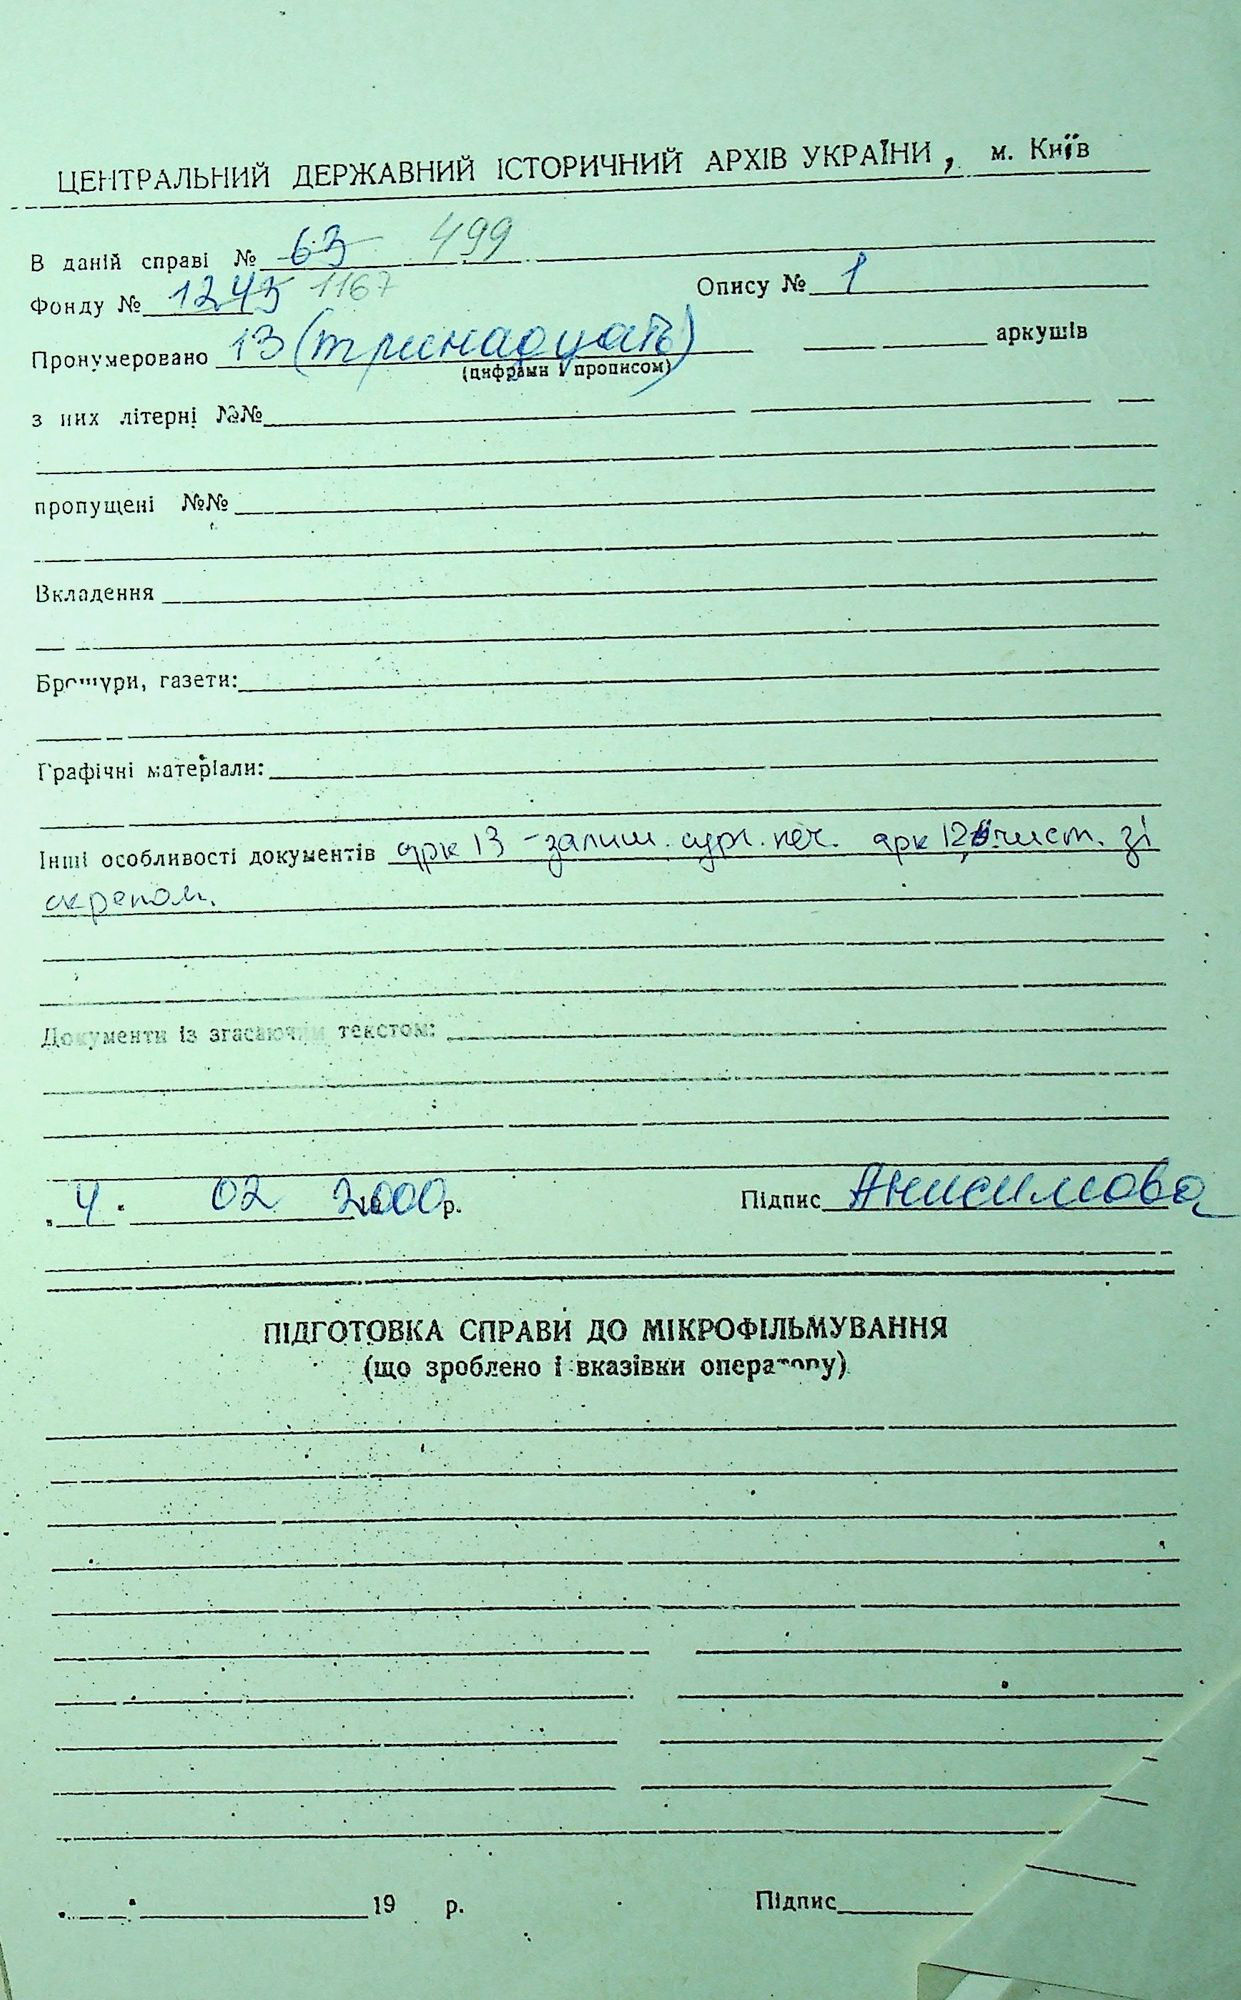 ЦЕНТРАЛЬНИЙ ДЕРЖАВНИЙ ІСТОРИЧНИЙ АРХІВ УКРАЇНИ, м. Київ
В даній справі № 63 499
Фонду № 1245 1167 Опису № 1
Пронумеровано 13 (тринадцать) аркушів
(цифрами і прописом)
з них літерні №№
пропущені №№
Вкладення
Брошури, газети:
Графічні матеріали:
Інші особливості документів арк 13 - залиш. сург. печ. арк 12 чист. зі
скрепом.
Документи із згасаючим текстом:
4. 02 2000 р. Підпис Анисимова
ПІДГОТОВКА СПРАВИ ДО МІКРОФІЛЬМУВАННЯ
(що зроблено і вказівки оператору)
19 р. Підпис